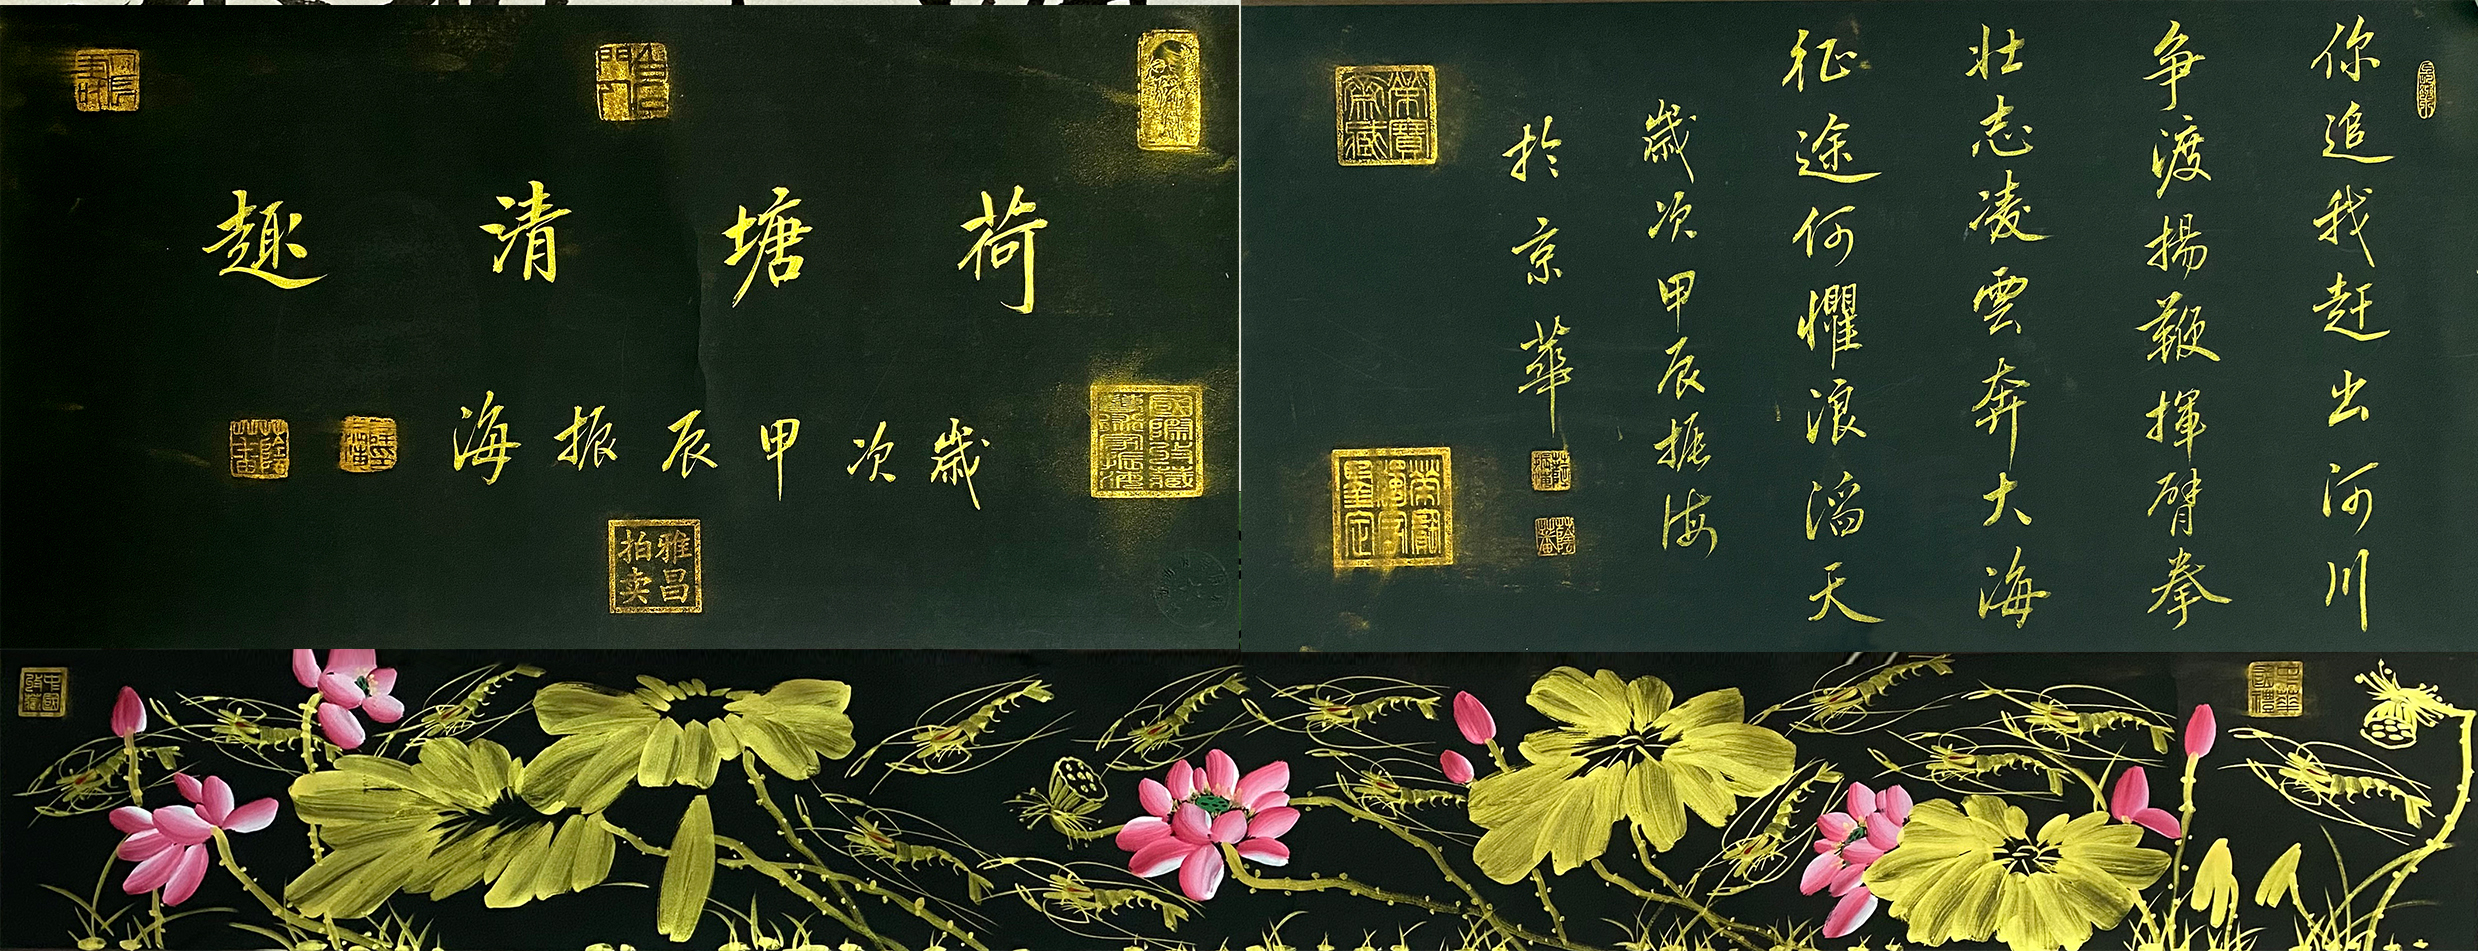 荷塘清趣
歲次甲辰振海
雅昌
拍卖
你追我赶出河川
争渡揚鞭揮臂拳
壮志凌雲奔大海
征途何懼浪滔天
歲次甲辰振海
於京華
榮寶
齋藏